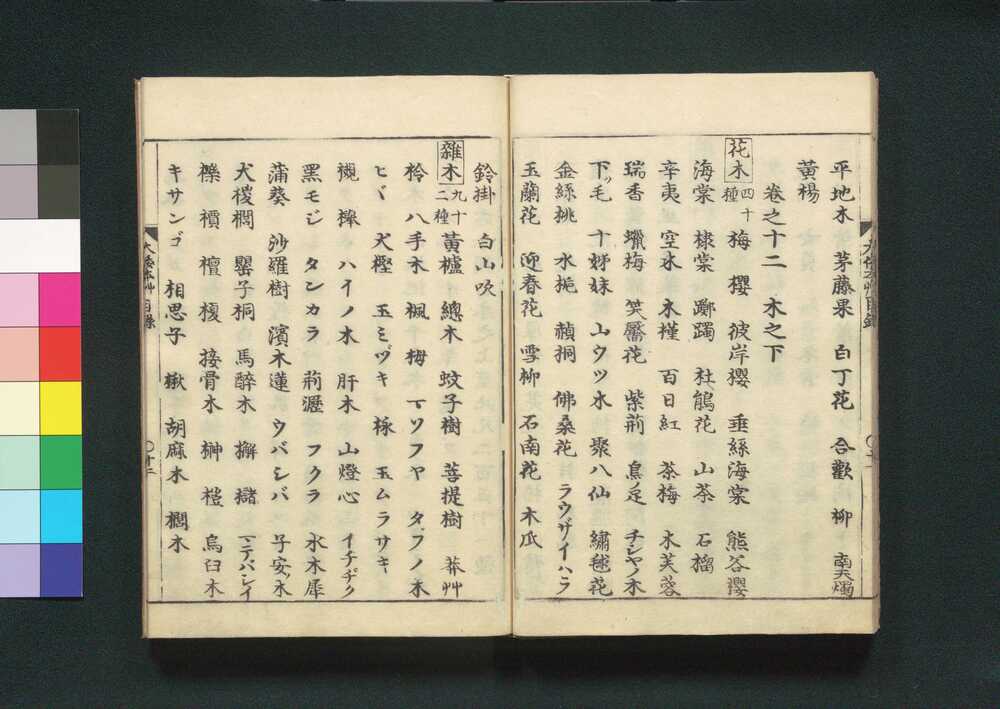 平地木 茅藤果 白丁花 合歡 柳 南天燭
黄楊
卷之十二 木之下
花木 四十種 梅 櫻 彼岸櫻 垂絲海棠 熊谷櫻
海棠 棣棠 躑躅 杜鵑花 山茶 石榴
辛夷 空木 木槿 百日紅 茶梅 木芙蓉
瑞香 蠟梅 笑靨花 紫荊 鳥ノ足 チシヤノ木
下ツ毛 十姉妹 山ウツ木 聚八仙 繡毬花
金絲桃 水梔 赬桐 佛桑花 ラウザイハラ
玉蘭花 迎春花 雪柳 石南花 木瓜
鈴掛 白山吹
雜木 九十二種 黄櫨 總木 蚊子樹 菩提樹 莽艸
柃 八手木 楓 梅 マソフヤ タブノ木
ヒバ 犬樫 玉ミヅキ 椓 玉ムラサキ
櫬 榫 ハイノ木 肝木 山燈心 イチヂク
黑モジ タンカラ 荊瀝 フクラ 水木犀
蒲葵 沙羅樹 濱木蓮 ウバシバ 子安木
犬椶櫚 罌子桐 馬醉木 檞 櫧 マテバシイ
櫟 檟 檀 榎 接骨木 榊 榿 烏臼木
キサンゴ 相思子 楸 胡麻木 櫚木
大倭本艸目錄
〇十二